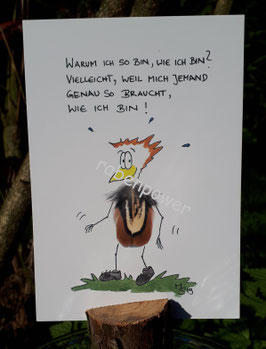 WARUM ICH SO BIN, WIE ICH BIN?
VIELLEICHT, WEIL MICH JEMAND
GENAU SO BRAUCHT,
WIE ICH BIN!
rabenpower